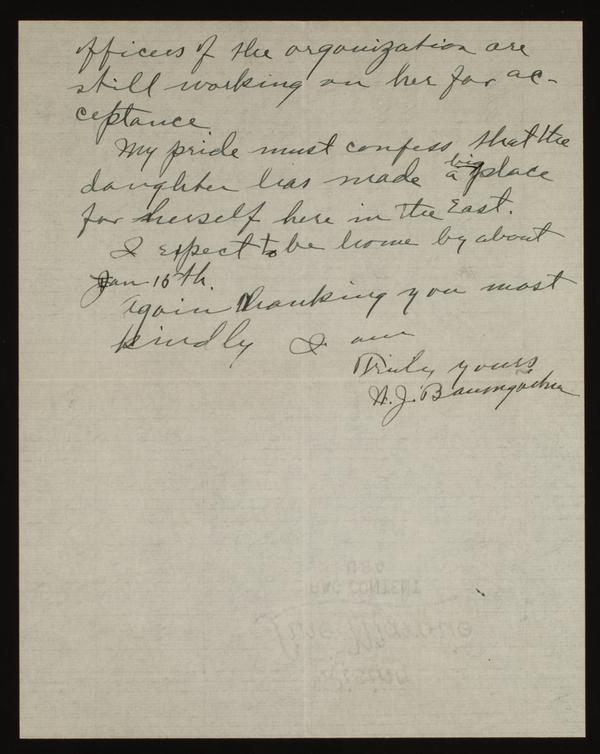 officers of the organization are
still working on her for ac-
ceptance
My pride must confess that the
daughter has made a big place
for herself here in the East.
I expect to be home by about
Jan 15th.
Again thanking you most
kindly I am
Truly yours
H. J. Baumgartner